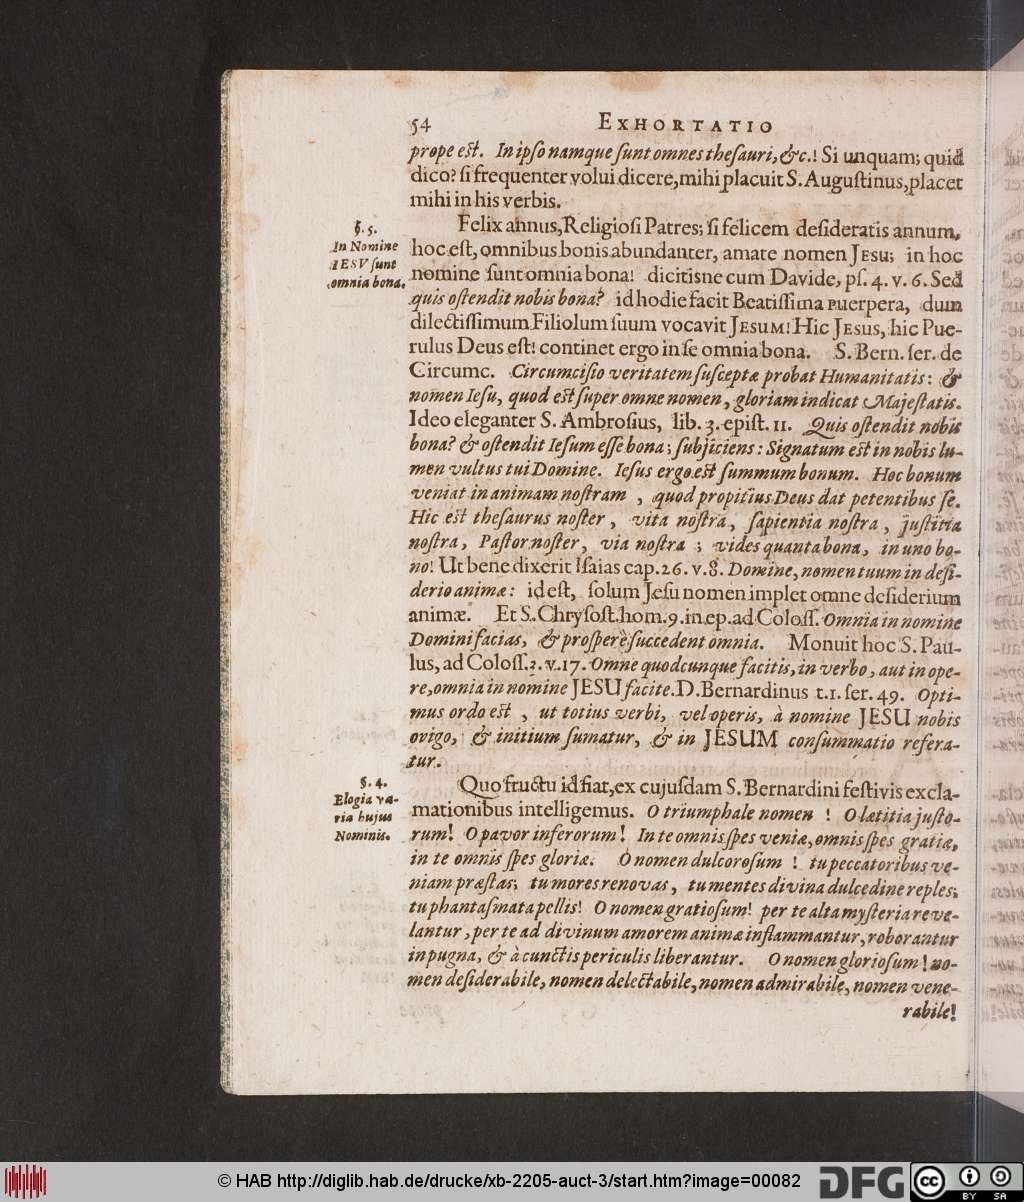 54 EXHORTATIO
prope est. In ipso namque sunt omnes thesauri, &c.! Si unquam; quid
dico? si frequenter volui dicere, mihi placuit S. Augustinus, placet
mihi in his verbis.
§. 5.
In Nomine
IESV sunt
omnia bona.
Felix annus, Religiosi Patres; si felicem desideratis annum,
hoc est, omnibus bonis abundanter, amate nomen JESU; in hoc
nomine sunt omnia bona! dicitisne cum Davide, ps. 4. v. 6. Sed
quis ostendit nobis bona? id hodie facit Beatissima puerpera, dum
dilectissimum Filiolum suum vocavit JESUM! Hic JESUS, hic Pue-
rulus Deus est! continet ergo in se omnia bona. S. Bern. ser. de
Circumc. Circumcisio veritatem susceptæ probat Humanitatis: &
nomen Iesu, quod est super omne nomen, gloriam indicat Majestatis.
Ideo eleganter S. Ambrosius, lib. 3. epist. 11. Quis ostendit nobis
bona? & ostendit Iesum esse bona; subjiciens: Signatum est in nobis lu-
men vultus tui Domine. Iesus ergo est summum bonum. Hoc bonum
veniat in animam nostram, quod propitius Deus dat petentibus se.
Hic est thesaurus noster, vita nostra, sapientia nostra, justitia
nostra, Pastor noster, via nostra; vides quanta bona, in uno bo-
no! Ut bene dixerit Isaias cap. 26. v. 8. Domine, nomen tuum in desi-
derio animæ: id est, solum Jesu nomen implet omne desiderium
animæ. Et S. Chrysost. hom. 9. in ep. ad Coloss. Omnia in nomine
Domini facias, & prosperè succedent omnia. Monuit hoc S. Pau-
lus, ad Coloss. 3. v. 17. Omne quodcunque facitis, in verbo, aut in ope-
re, omnia in nomine JESU facite. D. Bernardinus t. 1. ser. 49. Opti-
mus ordo est, ut totius verbi, vel operis, à nomine JESU nobis
origo, & initium sumatur, & in JESUM consummatio refera-
tur.
§. 4.
Elogia va-
ria hujus
Nominis.
Quo fructu id fiat, ex cujusdam S. Bernardini festivis excla-
mationibus intelligemus. O triumphale nomen! O lætitia justo-
rum! O pavor inferorum! In te omnis spes veniæ, omnis spes gratiæ,
in te omnis spes gloriæ. O nomen dulcorosum! tu peccatoribus ve-
niam præstas; tu mores renovas, tu mentes divina dulcedine reples;
tu phantasmata pellis! O nomen gratiosum! per te alta mysteria reve-
lantur, per te ad divinum amorem animæ inflammantur, roborantur
in pugna, & à cunctis periculis liberantur. O nomen gloriosum! no-
men desiderabile, nomen delectabile, nomen admirabile, nomen vene-
rabile!
© HAB http://diglib.hab.de/drucke/xb-2205-auct-3/start.htm?image=00082
DFG
cc
BY SA